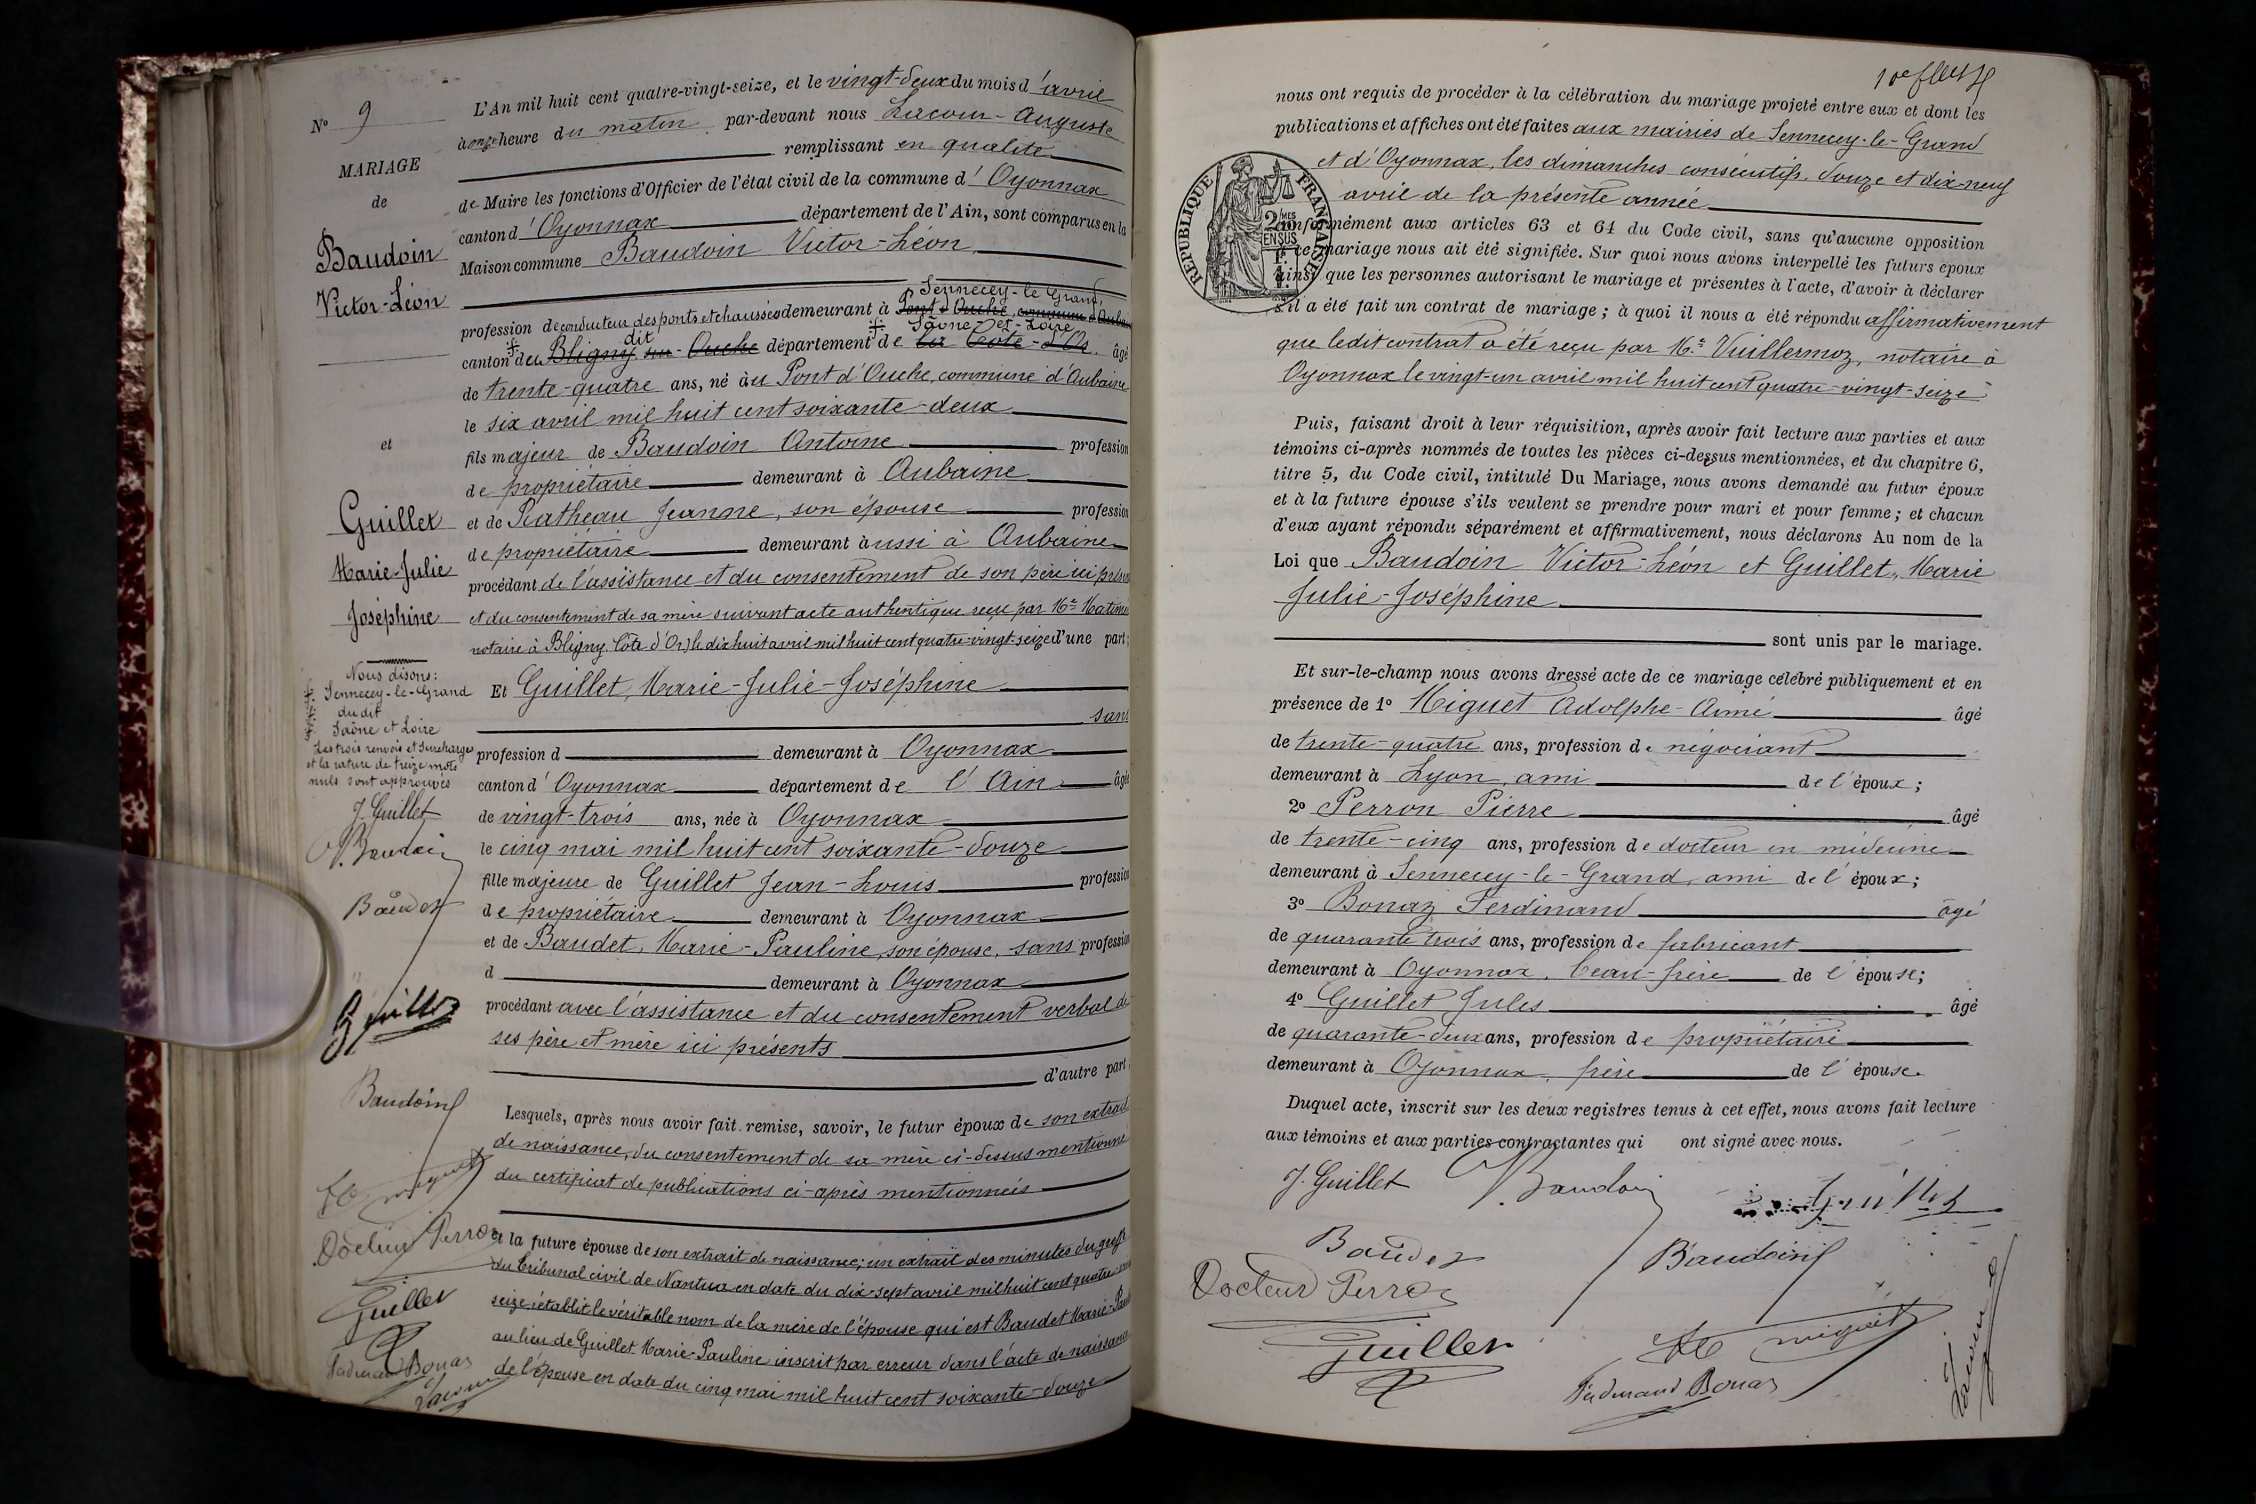 N° 9
MARIAGE
de
Baudoin
Victor-Léon
et
Guillet
Marie-Julie
Joséphine
Nous disons:
Sennecey-le-Grand
du dit
Saône et Loire
Les trois renvois et surcharges
et la rature de treize mots
nuls sont approuvés
J. Guillet
V. Baudoin
Baudet
Guillet
Baudoin
miguet
Docteur Perron
Guillet
Ferdinand Bonaz
Lacour
L'An mil huit cent quatre-vingt-seize, et le vingt-deux du mois d'avril
à onze heure du matin par-devant nous Lacour-Auguste
remplissant en qualité
de Maire les fonctions d'Officier de l'état civil de la commune d'Oyonnax
canton d'Oyonnax département de l'Ain, sont comparus en la
Maison commune Baudoin Victor-Léon
Sennecey-le Grand,
profession de conducteur des ponts et chaussées demeurant à Pont d'Ouche, commune d'Aubaine
dit Saône-et-Loire
canton de Bligny sur-Ouche département de la Côte-d'Or. âgé
de trente-quatre ans, né à u Pont d'Ouche, commune d'Aubaine
le six avril mil huit cent soixante-deux
fils majeur de Baudoin Antoine profession
de propriétaire demeurant à Aubaine
et de Ratheau Jeanne, son épouse profession
de propriétaire demeurant aussi à Aubaine
procédant de l'assistance et du consentement de son père ici présent
et du consentement de sa mère suivant acte authentique reçu par Me
notaire à Bligny (Côte d'Or) le dix huit avril mil huit cent quatre-vingt-seize d'une part;
Et Guillet, Marie-Julie-Joséphine
sans
profession d demeurant à Oyonnax
canton d'Oyonnax département de l'Ain âgée
de vingt-trois ans, née à Oyonnax
le cinq mai mil huit cent soixante-douze
fille majeure de Guillet Jean-Louis profession
de propriétaire demeurant à Oyonnax
et de Baudet, Marie-Pauline, son épouse, sans profession
d demeurant à Oyonnax
procédant avec l'assistance et du consentement verbal de
ses père et mère ici présents
d'autre part.
Lesquels, après nous avoir fait remise, savoir, le futur époux de son extrait
de naissance, du consentement de sa mère ci-dessus mentionné
du certificat de publications ci-après mentionnées
et la future épouse de son extrait de naissance; un extrait des minutes du greffe
du tribunal civil de Nantua en date du dix-sept avril mil huit cent quatre-vingt
seize rétablit le véritable nom de la mère de l'épouse qui est Baudet Marie-Pauline
au lieu de Guillet Marie-Pauline inscrit par erreur dans l'acte de naissance
de l'épouse en date du cinq mai mil huit cent soixante-douze
nous ont requis de procéder à la célébration du mariage projeté entre eux et dont les
publications et affiches ont été faites aux mairies de Sennecey-le-Grand
et d'Oyonnax, les dimanches consécutifs, douze et dix-neuf
avril de la présente année
REPUBLIQUE FRANÇAISE
2 MES
EN SUS
conformément aux articles 63 et 64 du Code civil, sans qu'aucune opposition
à ce mariage nous ait été signifiée. Sur quoi nous avons interpellé les futurs époux
ainsi que les personnes autorisant le mariage et présentes à l'acte, d'avoir à déclarer
s'il a été fait un contrat de mariage; à quoi il nous a été répondu affirmativement
que ledit contrat a été reçu par Me Vuillermoz, notaire à
Oyonnax le vingt-un avril mil huit cent quatre-vingt-seize
Puis, faisant droit à leur réquisition, après avoir fait lecture aux parties et aux
témoins ci-après nommés de toutes les pièces ci-dessus mentionnées, et du chapitre 6,
titre 5, du Code civil, intitulé Du Mariage, nous avons demandé au futur époux
et à la future épouse s'ils veulent se prendre pour mari et pour femme; et chacun
d'eux ayant répondu séparément et affirmativement, nous déclarons Au nom de la
Loi que Baudoin Victor-Léon et Guillet, Marie
Julie-Joséphine
sont unis par le mariage.
Et sur-le-champ nous avons dressé acte de ce mariage célébré publiquement et en
présence de 1° Miguet Adolphe-Aimé âgé
de trente-quatre ans, profession de négociant
demeurant à Lyon, ami de l'époux;
2° Perron Pierre âgé
de trente-cinq ans, profession de docteur en médecine
demeurant à Sennecey-le-Grand, ami de l'époux;
3° Bonaz Ferdinand âgé
de quarante trois ans, profession de fabricant
demeurant à Oyonnax, beau-frère de l'épouse;
4° Guillet Jules âgé
de quarante-deux ans, profession de propriétaire
demeurant à Oyonnax, frère de l'épouse.
Duquel acte, inscrit sur les deux registres tenus à cet effet, nous avons fait lecture
aux témoins et aux parties contractantes qui ont signé avec nous.
J. Guillet V. Baudoin
Baudet Baudoin
Docteur Perron
Guillet miguet
Ferdinand Bonaz Lacour